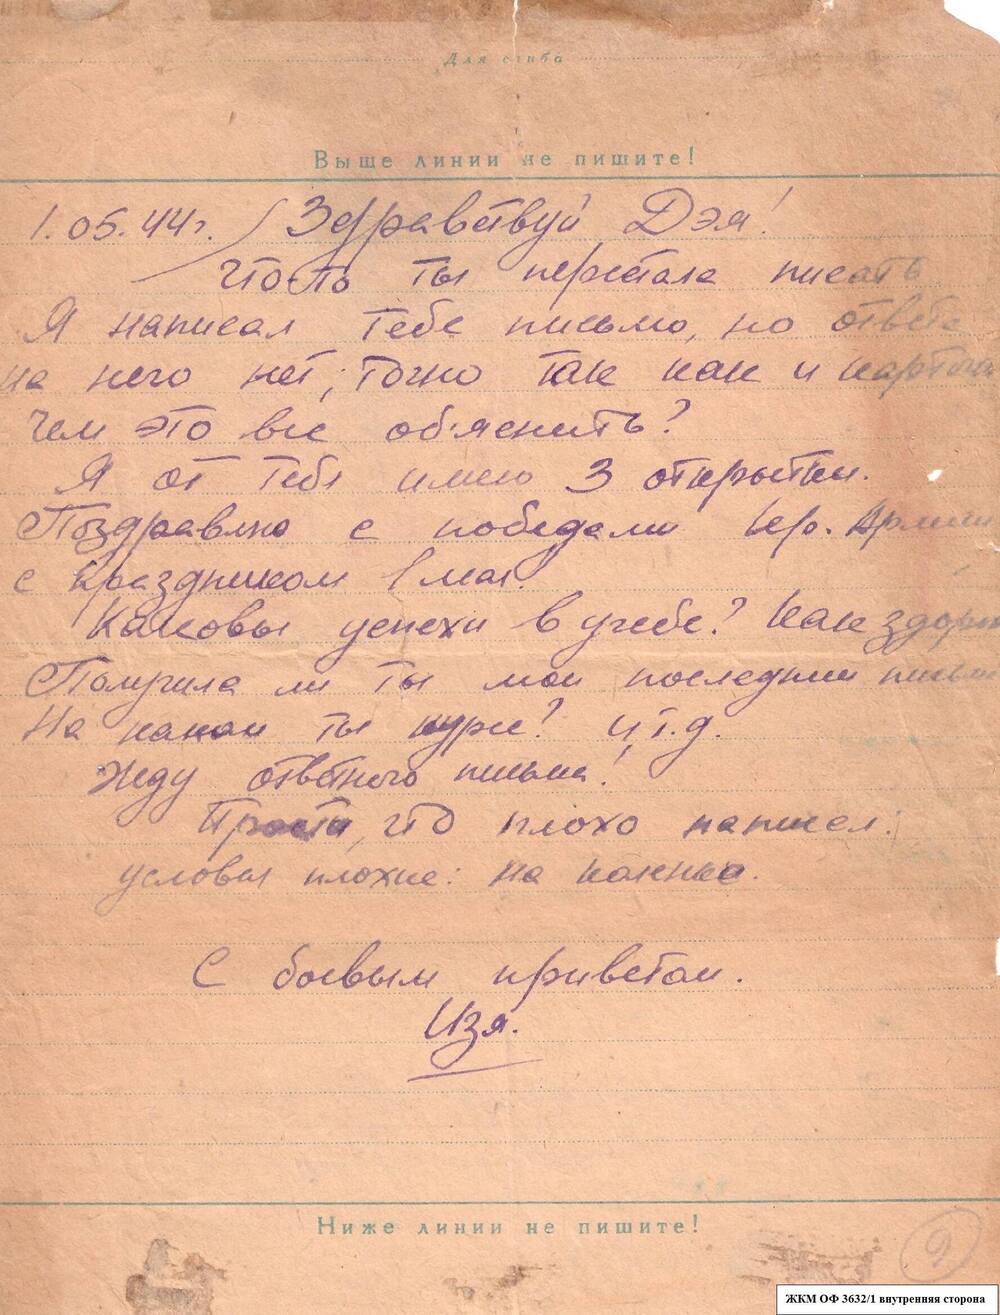 Для сгиба
Выше линии не пишите!
1.05.44г. Здравствуй Дэя!
Что-ль ты перестала писать
Я написал тебе письмо, но ответа
на него нет; точно так как и карточки
Чем это все объяснить?
Я от тебя имею 3 открытки.
Поздравляю с победами Кр. Армии
с праздником 1 мая.
Каковы успехи в учебе? Как здоров
Получила ли ты мои последнии письма
На каком ты курсе? и т.д.
Жду ответного письма!
Прости, что плохо написал:
условия плохие: на коленке.
С боевым приветом.
Изя.
Ниже линии не пишите!
9
ЖКМ ОФ 3632/1 внутренняя сторона